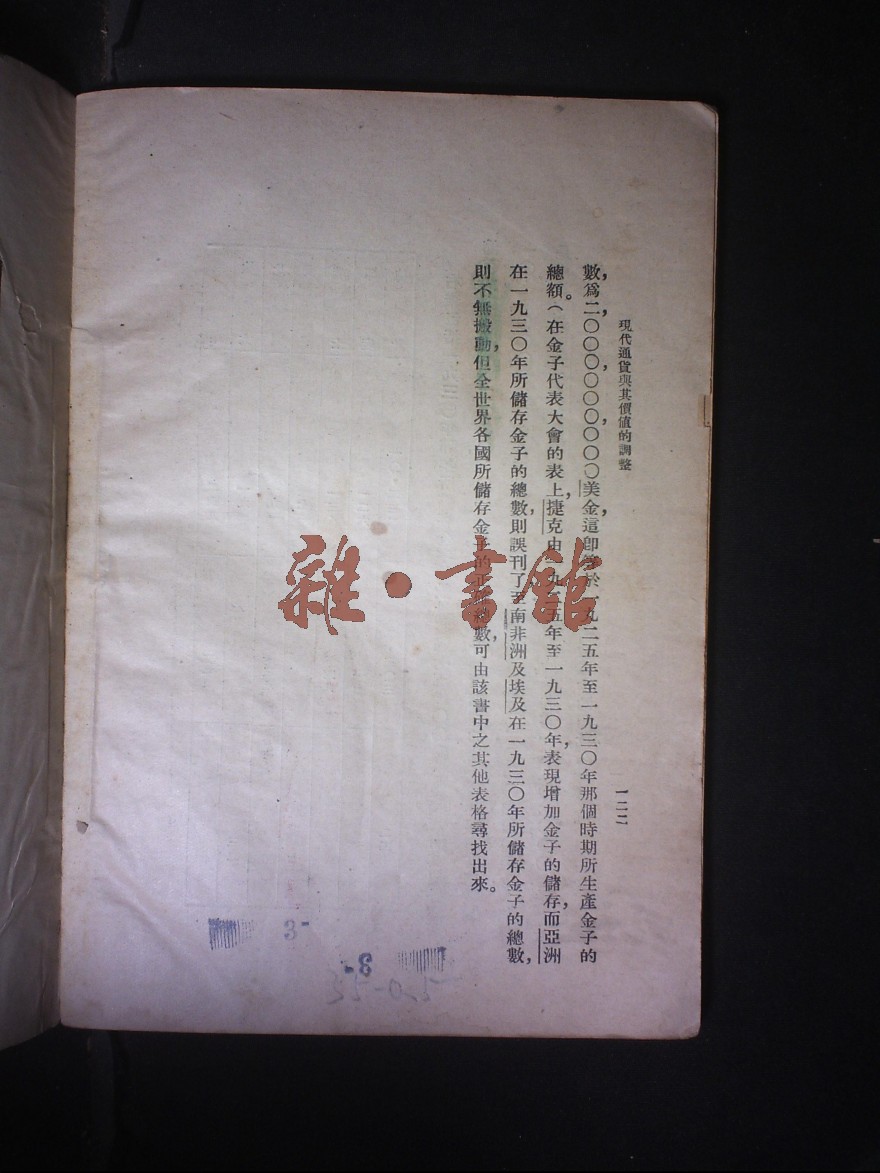 現代通貨與其價値的調整
一二二
數爲二,〇〇〇,〇〇〇,〇〇〇美金,這卽等於一九二五年至一九三〇年那個時期所生產金子的
總額。(在金子代表大會的表上,捷克由一九二五年至一九三〇年,表現增加金子的儲存,而亞洲
在一九三〇年所儲存金子的總數,則誤刊了至南非洲及埃及在一九三〇年所儲存金子的總數,
則不無搬動,但全世界各國所儲存金子的正總數,可由該書中之其他表格尋找出來。
雜·書館
3-
3-